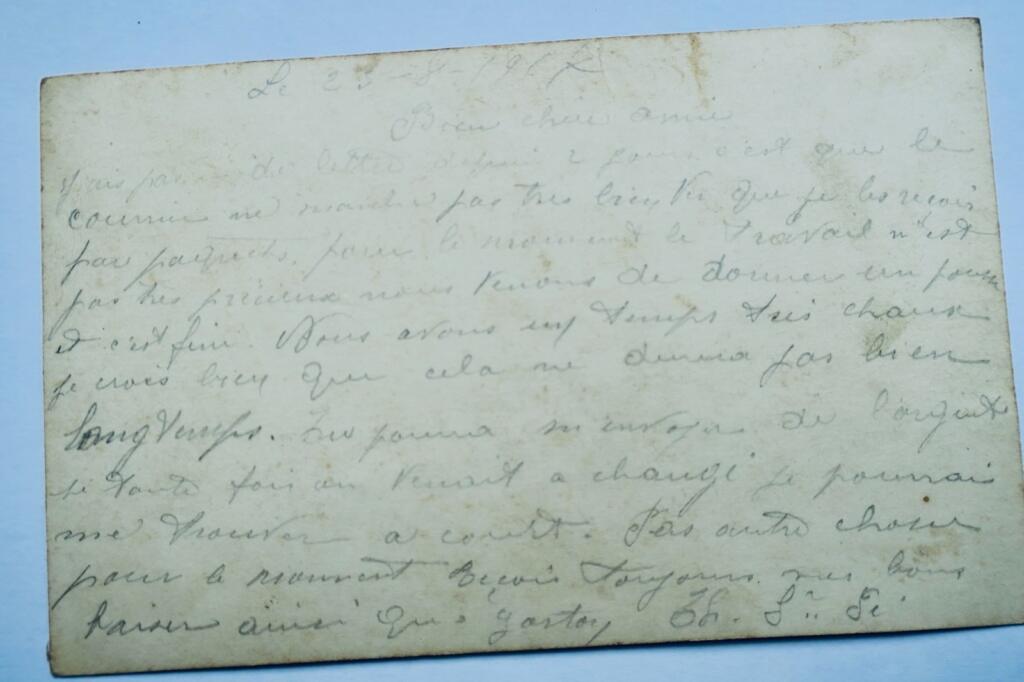 Le 23-8-1917
Bien chère amie
pas de lettre depuis 2 jours c'est que le
courrier ne marche pas très bien que je les reçois
par paquets. pour le moment le travail n'est
pas très nous venons de donner un
et c'est fini. Nous avons un temps très chaux
je crois bien que cela ne durera pas bien
longtemps. Tu pourra m'envoyer de l'argent
si toute fois on venait a changé je pourrai
me trouver a court. Pas autre chose
pour le moment Reçois toujours mes bons
baiser ainsi que Gaston